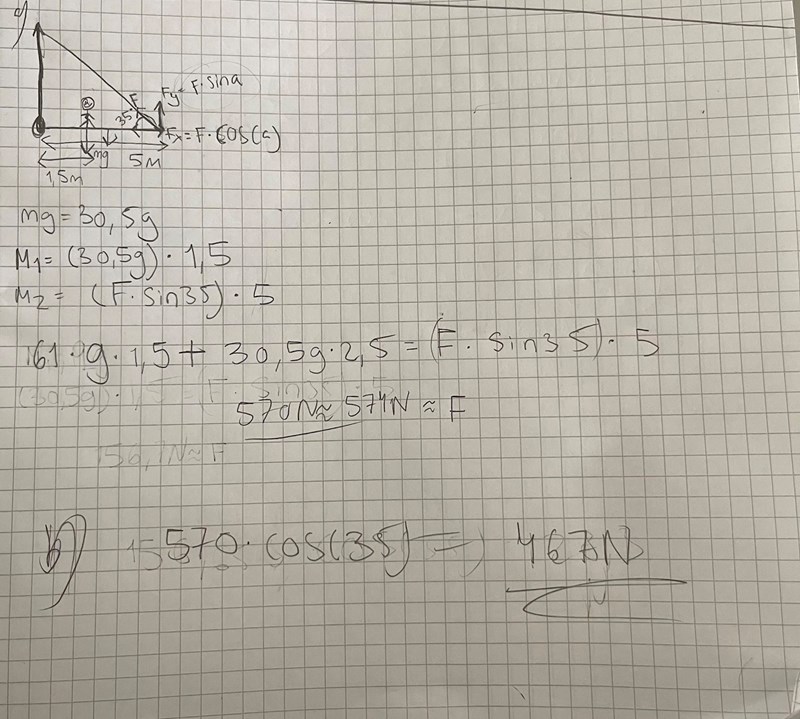 a)
Fy= F·sina
F
35
Fx= F·cos(a)
mg
5M
1,5M
mg = 30,5g
M₁= (30,5g)·1,5
M₂= (F·sin35)·5
61·g·1,5+ 30,5g·2,5=(F·sin35)·5
(30,5g)·1,5=(F·sin35)·5
570N≈ 574N ≈ F
156,1N≈F
b) 570·cos(35) = 467N